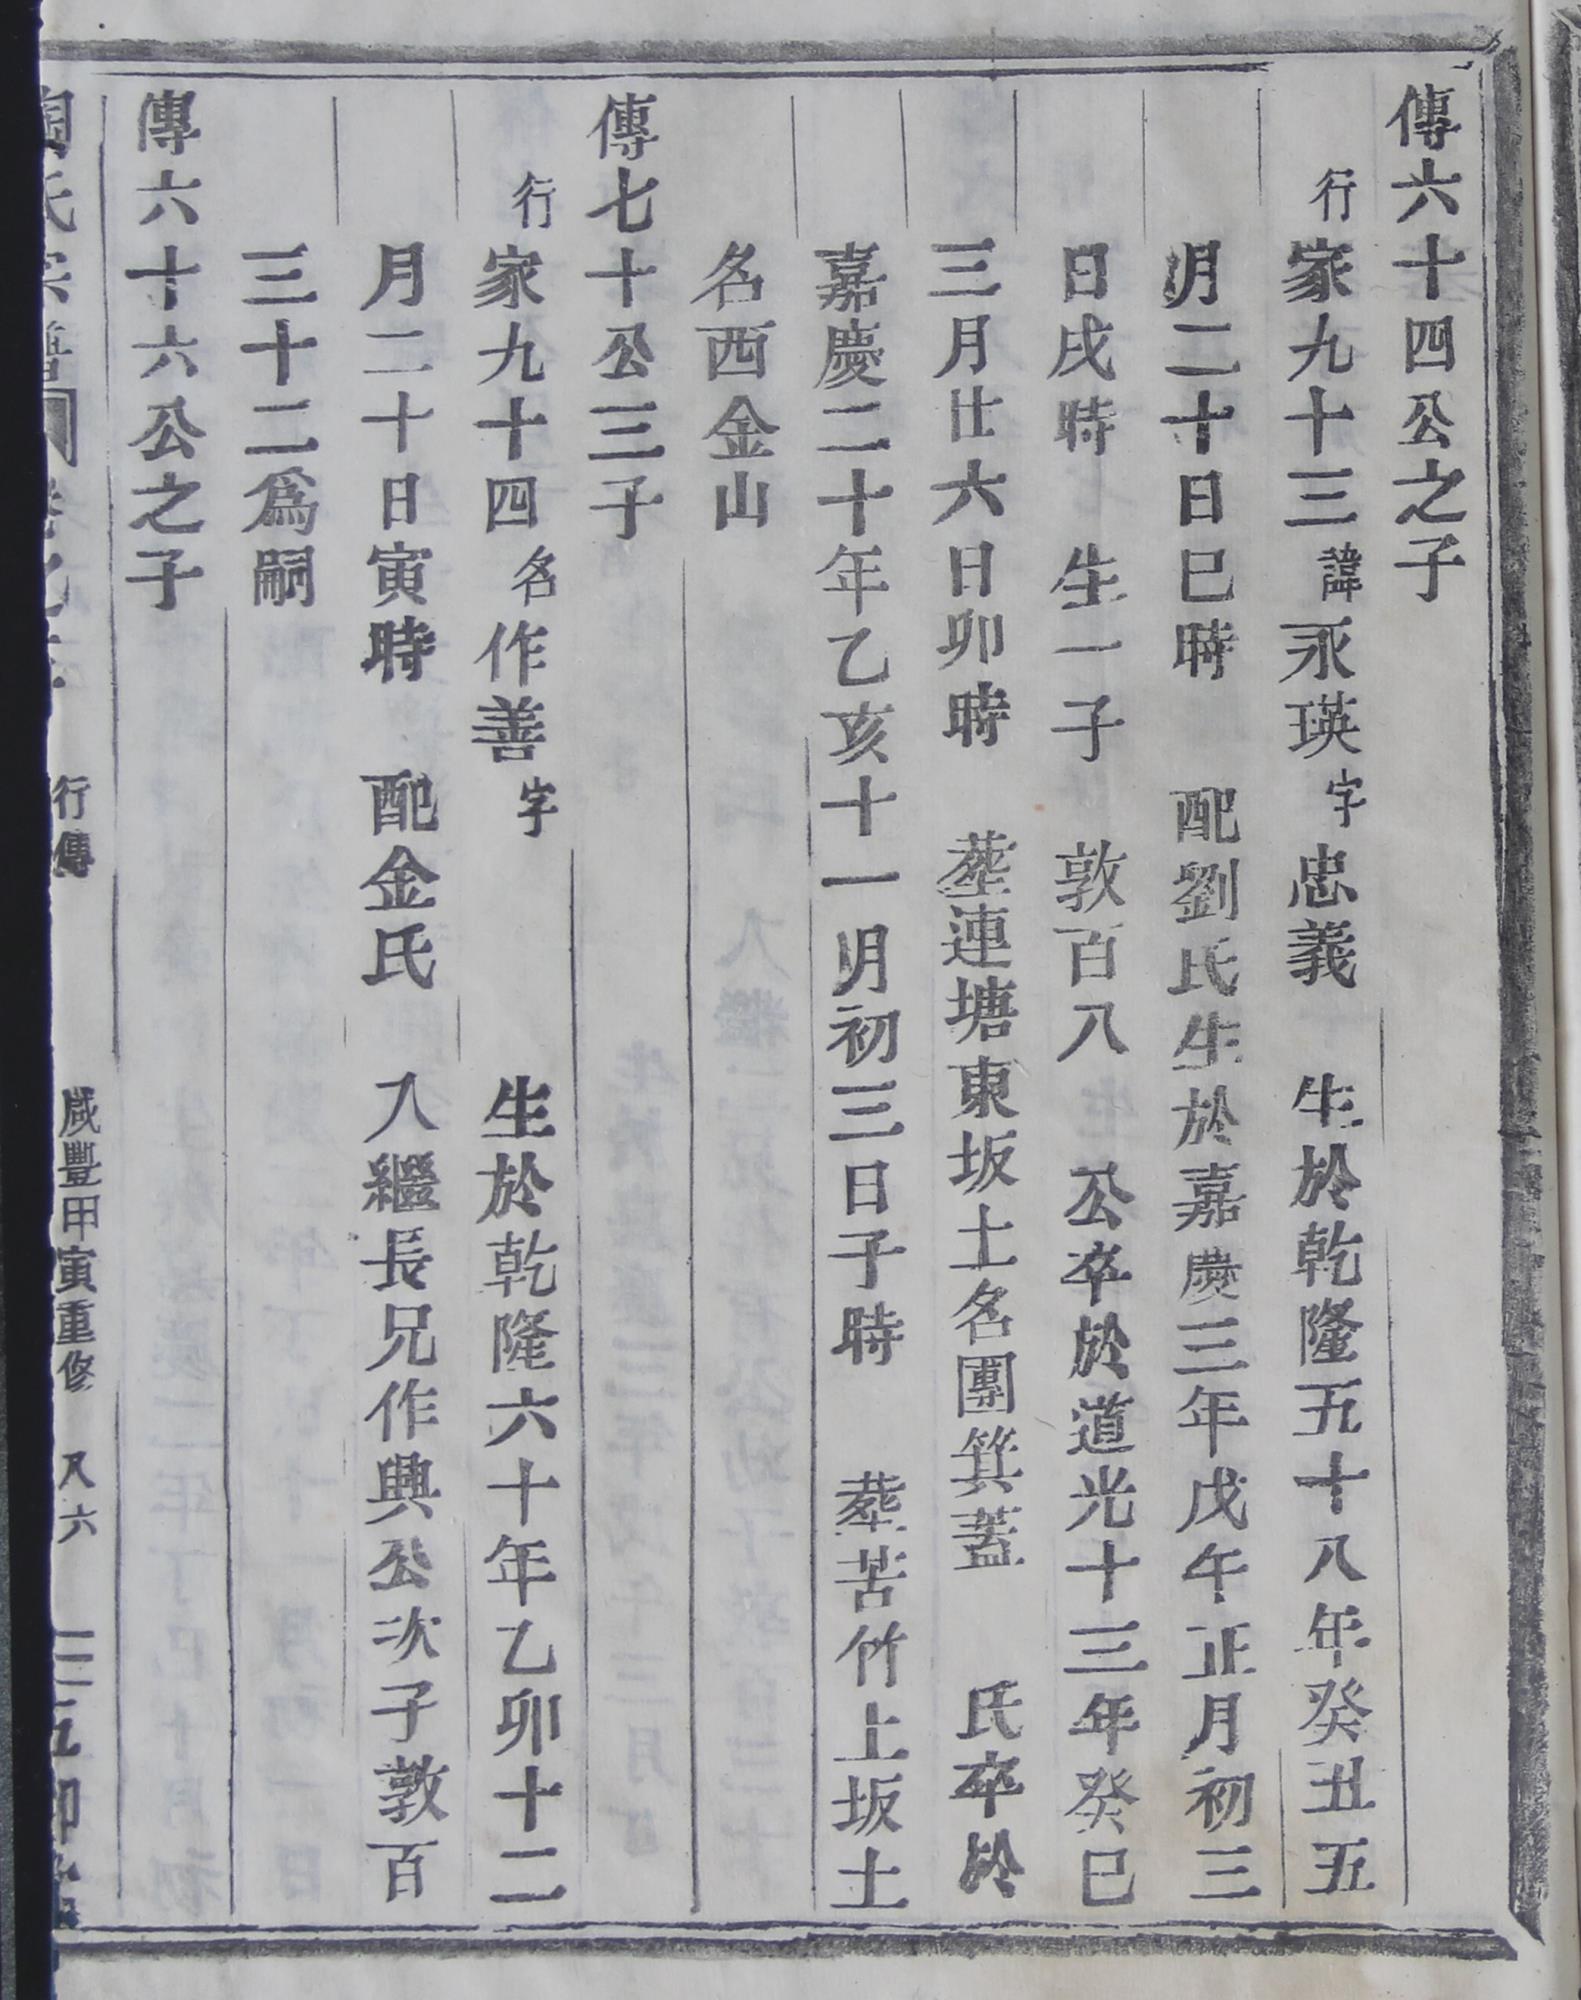 傳六十四公之子
行家九十三諱永瑛字忠義 生於乾隆五十八年癸丑五
月二十日巳時 配劉氏生於嘉慶三年戊午正月初三
日戌時 生一子 敦百八 公卒於道光十三年癸巳
三月廿六日卯時 塟連塘東坂土名團箕蓋 氏卒於
嘉慶二十年乙亥十一月初三日子時 塟苦竹上坂土
名西金山
傳七十公三子
行家九十四名作善字 生於乾隆六十年乙卯十二
月二十日寅時 配金氏 入繼長兄作興公次子敦百
三十二爲嗣
傳六十六公之子
行傳 咸豐甲寅重修 又六